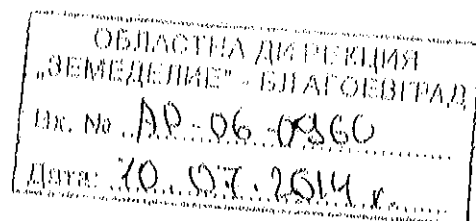 ОБЛАСТНА ДИРЕКЦИЯ
„ЗЕМЕДЕЛИЕ" - БЛАГОЕВГРАД
Вх. № АР-06-
Дата: 10.07.2014 г.